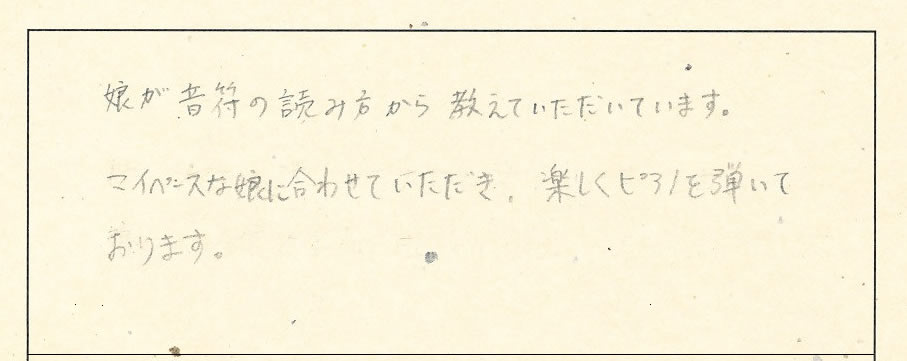 娘が音符の読み方から教えていただいています。
マイペースな娘に合わせていただき、楽しくピアノを弾いて
おります。